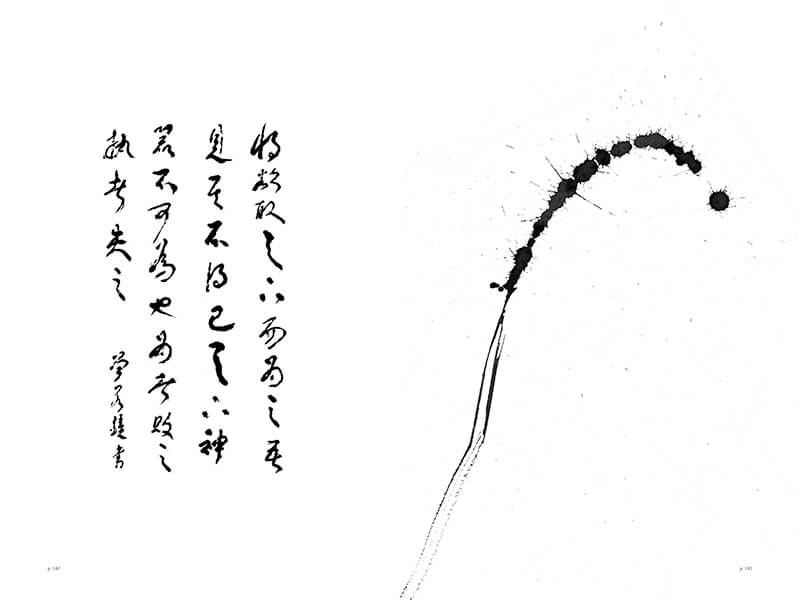 將欲取天下而為之吾
見其不得已天下神
器不可為也為者敗之
執者失之
書